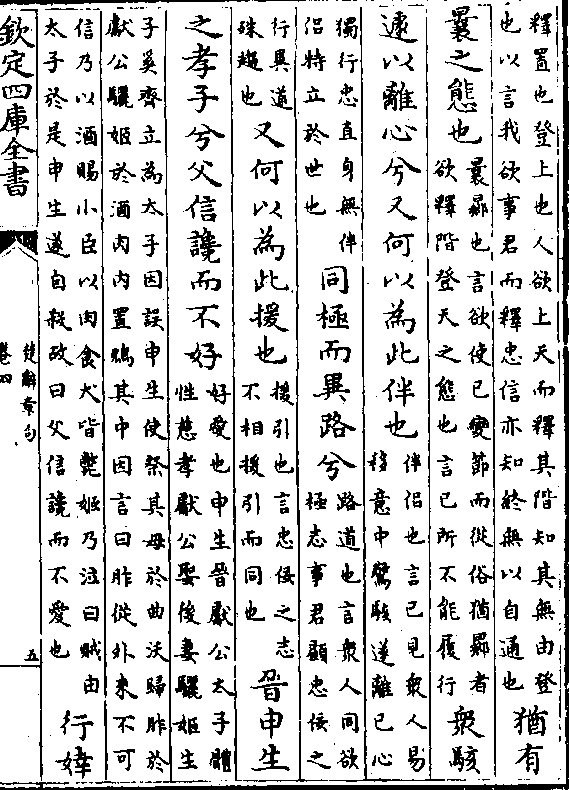 釋置也登上也人欲上天而釋其階知其無由登
也以言我欲事君而釋忠信亦知終無以自通也
猶有
曩之態也
曩曏也言欲使已變節而從俗猶曏者
欲釋階登天之態也言已所不能履行
衆駭
遽以離心兮又何以為此伴也
伴侣也言已見衆人易
移意中驚駭遂離已心
獨行忠直身無伴
侣特立於世也
同極而異路兮
路道也言衆人同欲
極志事君顧忠佞之
行異道
殊趨也
又何以為此援也
援引也言忠佞之志
不相援引而同也
晉申生
之孝子兮父信讒而不好
好愛也申生晉獻公太子體
性慈孝獻公娶後妻驪姬生
子奚齊立為太子因誤申生使祭其母於曲沃歸胙於
獻公驪姬於酒肉内置鴆其中因言曰胙從外來不可
信乃以酒賜小臣以肉食犬皆斃姬乃泣曰賊由
太子於是申生遂自殺故曰父信讒而不愛也
行婞
欽定四庫全書
楚辭章句
卷四
五